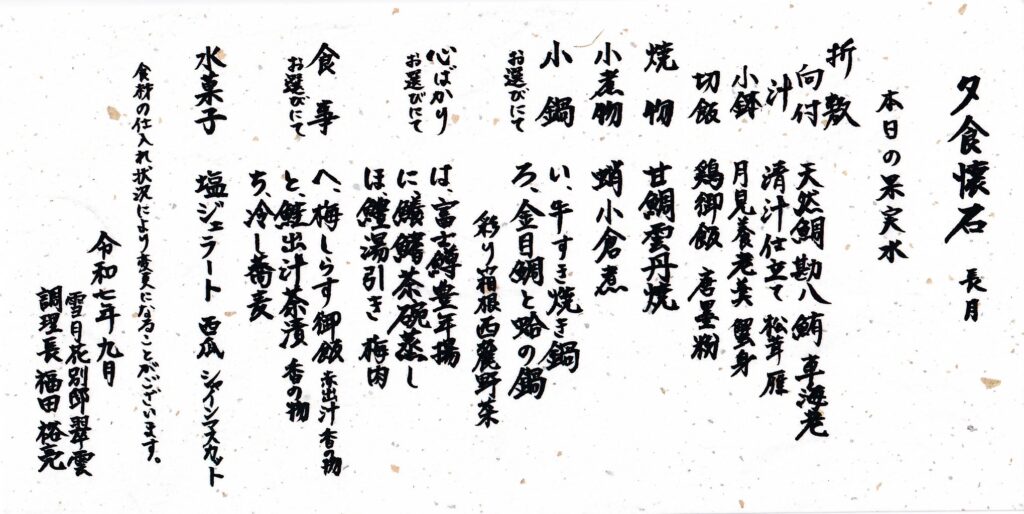 夕食懐石 長月
本日の果実水
折敷
向付 天然鯛 勘八 鮪 車海老
汁 清汁仕立て 松茸 雁
小鉢 月見養老美 蟹身
切飯 鶏御飯 唐墨粉
焼物 甘鯛雲丹焼
小煮物 蛸小倉煮
小鍋 い、牛すき焼き鍋
お選びにて ろ、金目鯛と蛤の鍋
彩り箱根西麓野菜
心ばかり は、富士鱒豊年揚
お選びにて に、鱶鰭茶碗蒸し
ほ、鱧湯引き 梅肉
食事 へ、梅しらす御飯 赤出汁 香の物
お選びにて と、鮭出汁茶漬 香の物
ち、冷し蕎麦
水菓子 塩ジェラート 西瓜 シャインマスカット
食材の仕入れ状況により変更になることがございます。
令和七年九月
雪月花別邸翠雲
調理長 福田裕亮